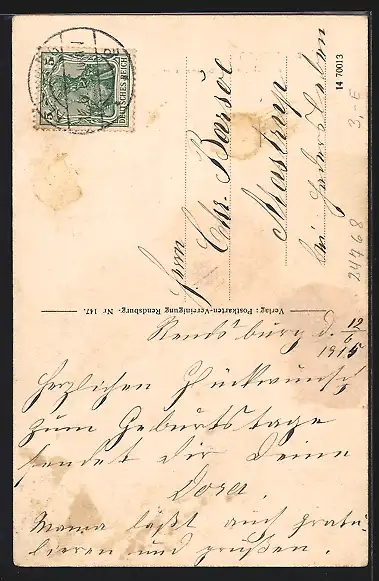 Herrn
Chr. Barsöe
Mastrup
bei Hadersleben
DEUTSCHES REICH
5
5
14 70013
3,-E
24768
Verlag: Postkarten-Vereinigung Rendsburg. Nr 147.
Rendsburg d. 12/6
1915
Herzlichen Glückwunsch
zum Geburtstage
sendet dir Deine
Dora.
Mama läßt auch gratu-
lieren und grüßen.